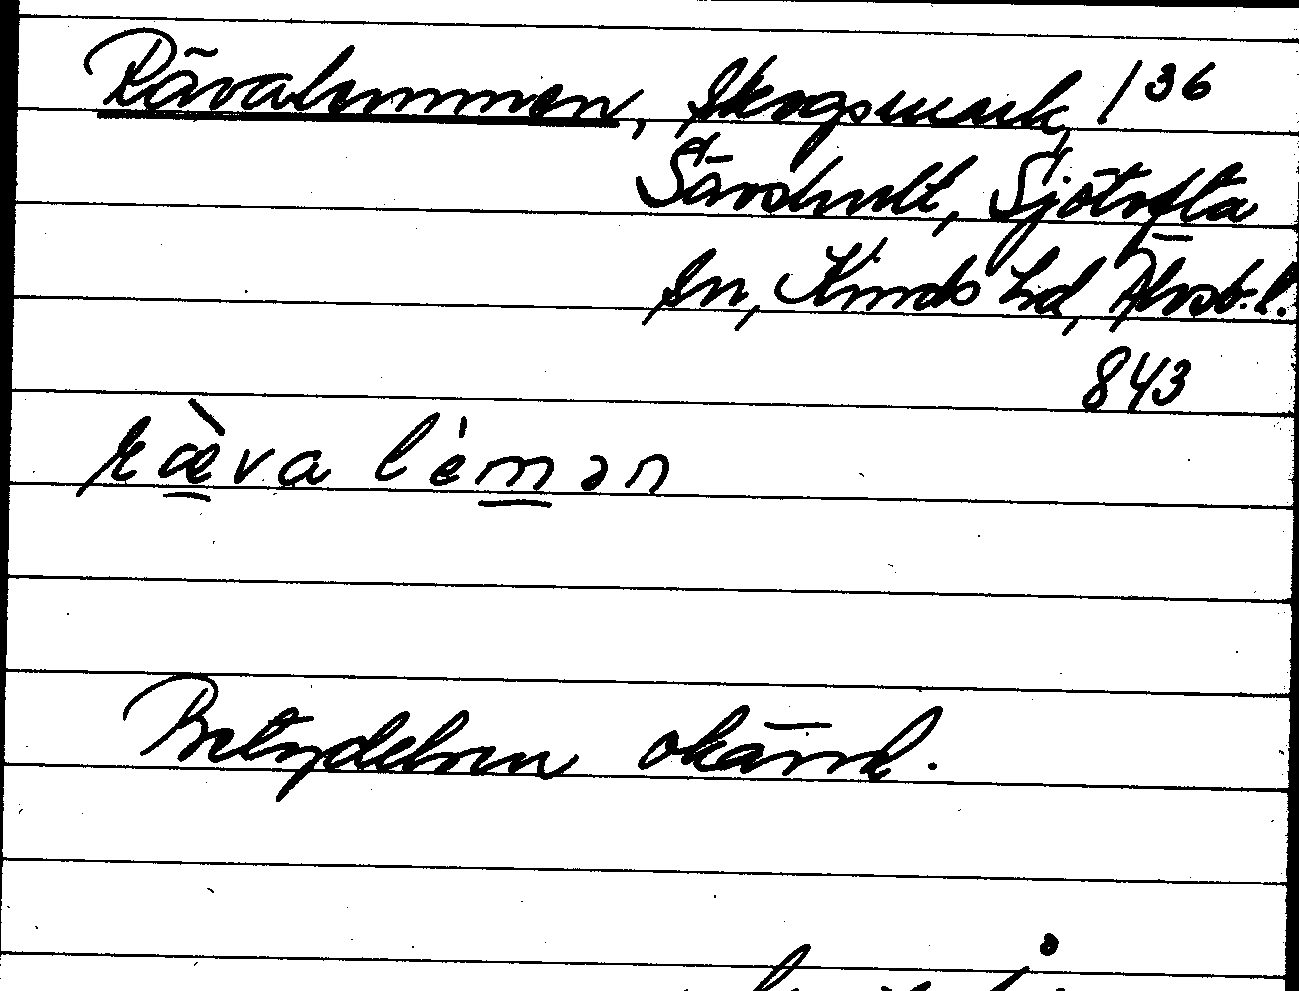 Rävalemmen, Skogsmark, 136
Särshult, Sjötofta
sn, Kinds hd, Älvsb. l.
843
ræ̀va lémən
Betydelsen okänd.